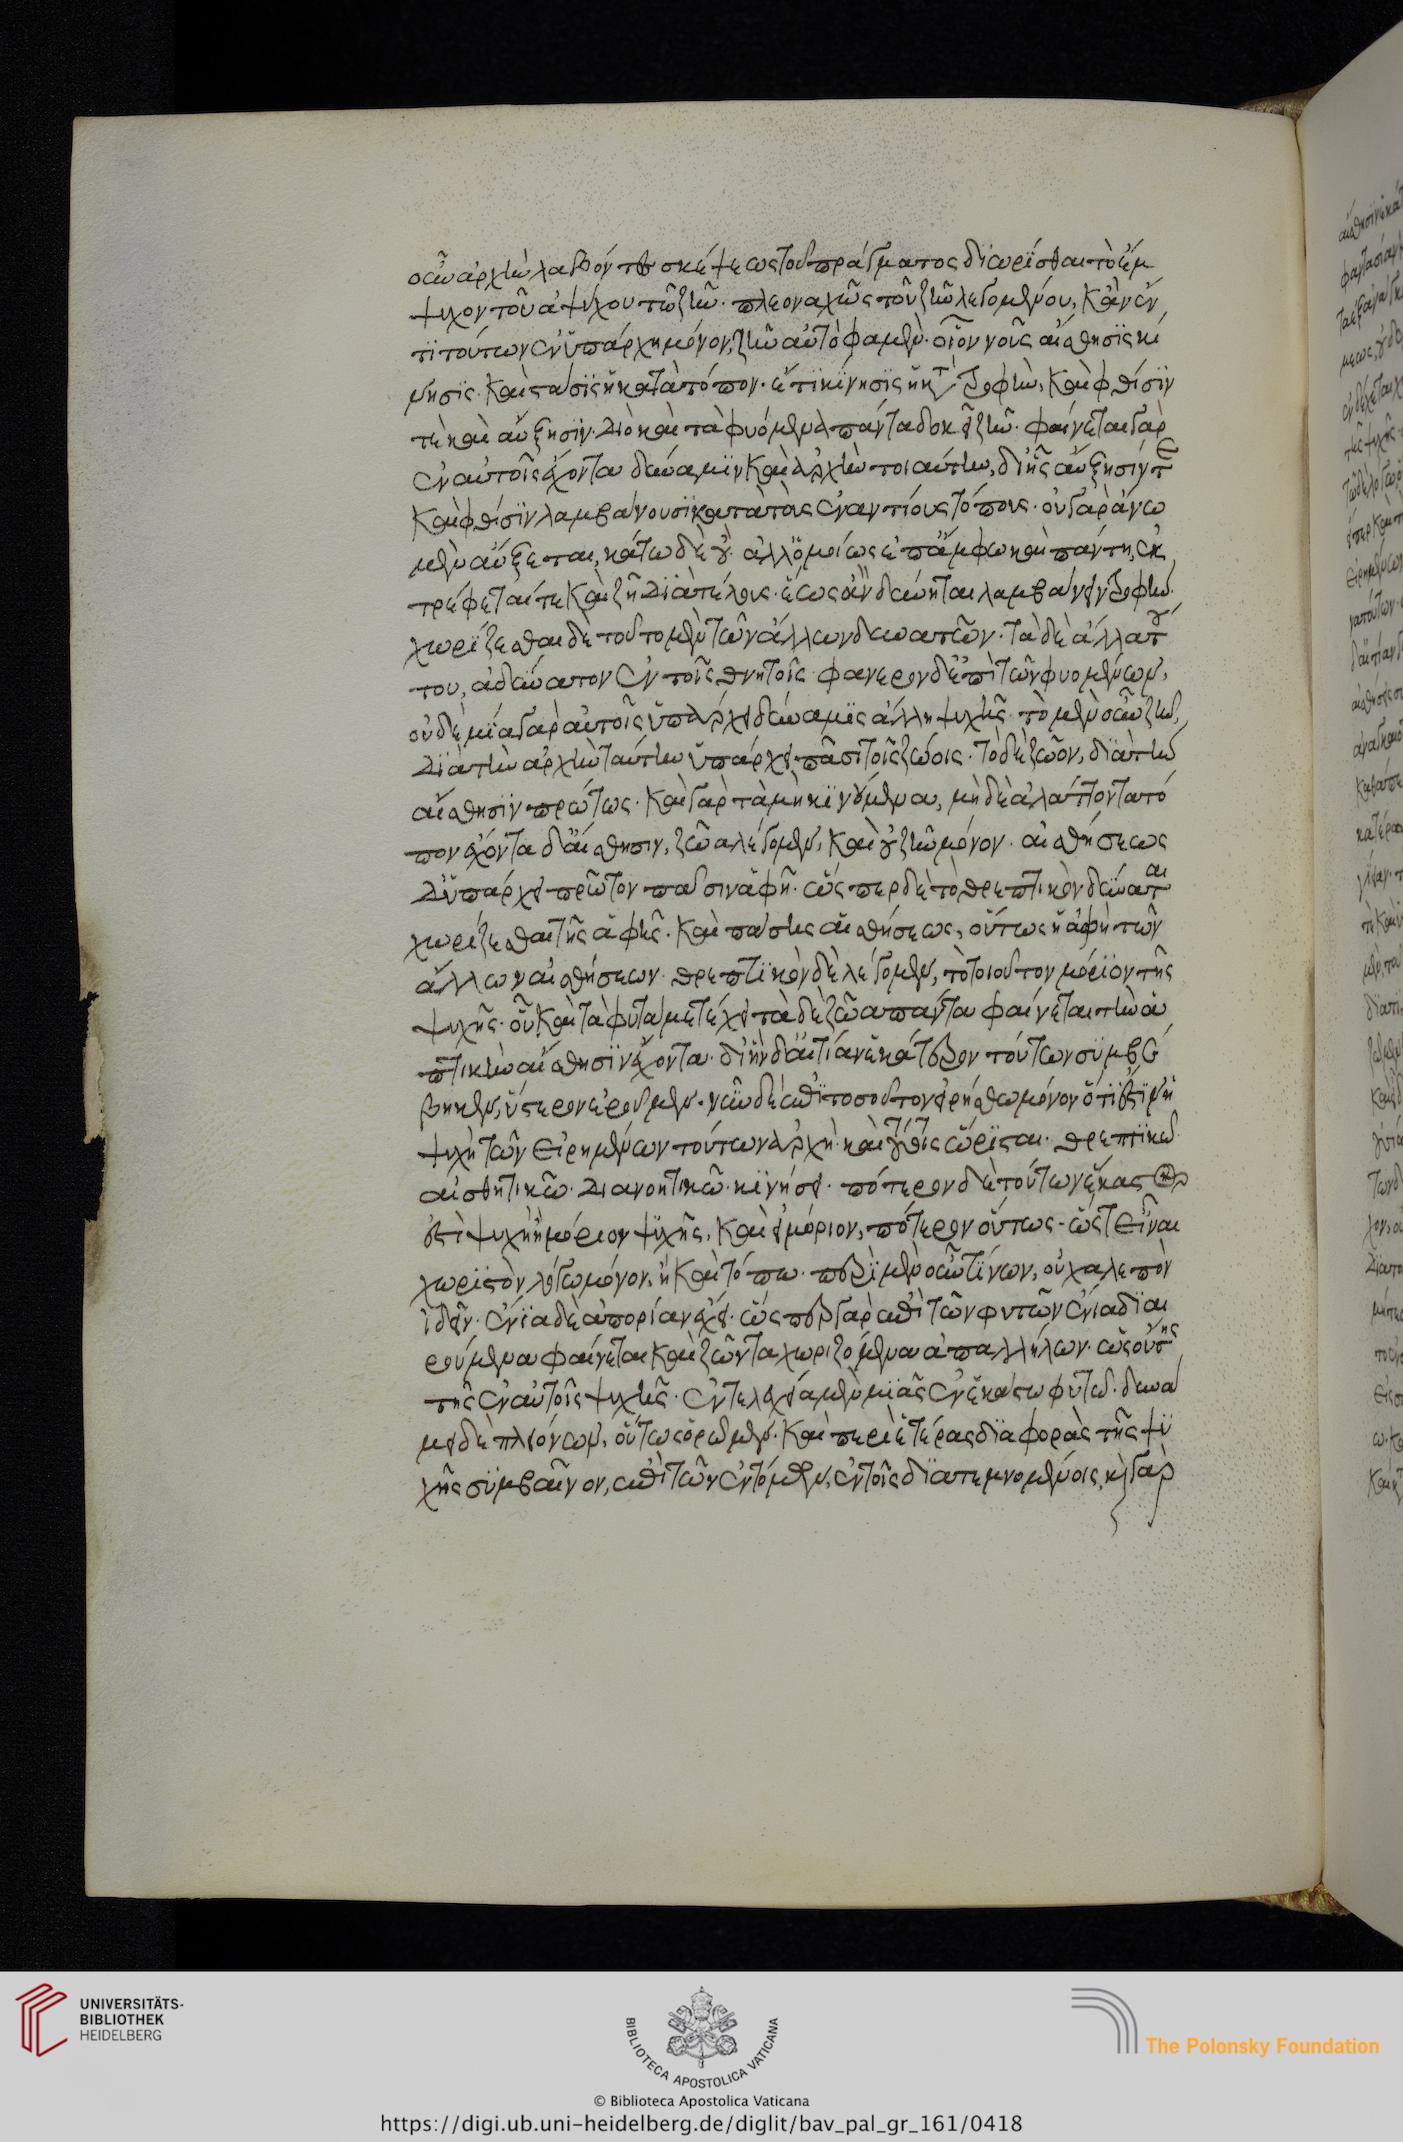 οὖν ἀρχὴν λαβόντες σκέψεως τοῦ πράγματος διωρίσθαι τὸ ἔμ
ψυχον τοῦ ἀψύχου τῶ ζῆν· πλεοναχῶς τοῦ ζῆν λεγομένου, κἂν ἕν
τι τούτων ἐνυπάρχη μόνον, ζῆν αὐτό φαμεν· οἷον νοῦς αἴσθησις κί
νησις· καὶ στάσις ἡ κατὰ τόπον· ἔτι κίνησις ἡ κατὰ τροφὴν, καὶ φθίσιν
τε καὶ αὔξησιν· διὸ καὶ τὰ φυόμενα πάντα δοκεῖ ζῆν· φαίνεται γὰρ
ἐν αὐτοῖς ἔχοντα δύναμιν καὶ ἀρχὴν τοιαύτην, δι' ἧς αὔξησίν τε
καὶ φθίσιν λαμβάνουσι κατὰ τοὺς ἐναντίους τόπους· οὐ γὰρ ἄνω
μὲν αὔξεται, κάτω δὲ οὔ· ἀλλ' ὁμοίως ἐπ' ἄμφω καὶ πάντη, ἐκ
τρέφεταί τε καὶ ζῆ διὰ τέλους· ἕως ἂν δύνηται λαμβάνειν τροφήν·
χωρίζεσθαι δὲ τοῦτο μὲν τῶν ἄλλων δυνατὸν· τὰ δὲ ἄλλα τού
του, ἀδύνατον ἐν τοῖς θνητοῖς· φανερὸν δ' ἐπὶ τῶν φυομένων,
οὐδεμία γὰρ αὐτοῖς ὑπάρχει δύναμις ἄλλη ψυχῆς· τὸ μὲν οὖν ζῆν,
διὰ τὴν ἀρχὴν ταύτην ὑπάρχει πᾶσι τοῖς ζώοις· τὸ δὲ ζῶον, διὰ τὴν
αἴσθησιν πρώτως· καὶ γὰρ τὰ μὴ κινούμενα, μὴ δὲ ἀλάττοντα τό
πον ἔχοντα δ' αἴσθησιν, ζῶα λέγομεν, καὶ οὐ ζῆν μόνον· αἰσθήσεως
δ' ὑπάρχει πρῶτον πᾶσιν ἁφῆ· ὥσπερ δὲ τὸ θρεπτικὸν δύναται
χωρίζεσθαι τῆς ἁφῆς· καὶ πάσης αἰσθήσεως, οὕτως ἡ ἁφὴ τῶν
ἄλλων αἰσθήσεων· θρεπτικὸν δὲ λέγομεν, τὸ τοιοῦτον μόριον τῆς
ψυχῆς· οὗ καὶ τὰ φυτὰ μετέχει τὰ δὲ ζῶα πάντα φαίνεται τὴν ἁ
πτικὴν αἴσθησιν ἔχοντα· δι' ἣν δ' αἰτίαν ἑκάτερον τούτων συμβέ
βηκεν, ὕστερον ἐροῦμεν· νῦν δὲ ἐπὶ τοσοῦτον εἰρήσθω μόνον ὅτι ἐστὶν ἡ
ψυχὴ τῶν εἰρημένων τούτων ἀρχὴ· καὶ τούτοις ὥρισται· θρεπτικῶ·
αἰσθητικῶ· διανοητικῶ· κινήσει· πότερον δὲ τούτων ἕκαστον
ἐστὶ ψυχὴ ἢ μόριον ψυχῆς, καὶ εἰ μόριον, πότερον οὕτως· ὥστ' εἶναι
χωριστὸν λόγω μόνον, ἢ καὶ τόπω· περὶ μὲν οὖν τίνων, οὐ χαλεπὸν
ἰδεῖν· ἔνια δὲ ἀπορίαν ἔχει· ὥσπερ γὰρ ἐπὶ τῶν φυτῶν ἔνια διαι
ρούμενα φαίνεται καὶ ζῶντα χωριζόμενα ἀπ' ἀλλήλων· ὡς οὔσης
τῆς ἐν αὐτοῖς ψυχῆς· ἐντελεχεία μὲν μιᾶς ἐν ἑκάστω φυτῶ· δυνά
μει δὲ πλειόνων, οὕτως ὁρῶμεν· καὶ περὶ ἑτέρας διαφορὰς τῆς ψυ
χῆς συμβαῖνον, ἐπὶ τῶν ἐντόμων, ἐν τοῖς διατεμνομένοις, καὶ γὰρ
UNIVERSITÄTS-
BIBLIOTHEK
HEIDELBERG
BIBLIOTECA APOSTOLICA VATICANA
© Biblioteca Apostolica Vaticana
The Polonsky Foundation
https://digi.ub.uni-heidelberg.de/diglit/bav_pal_gr_161/0418